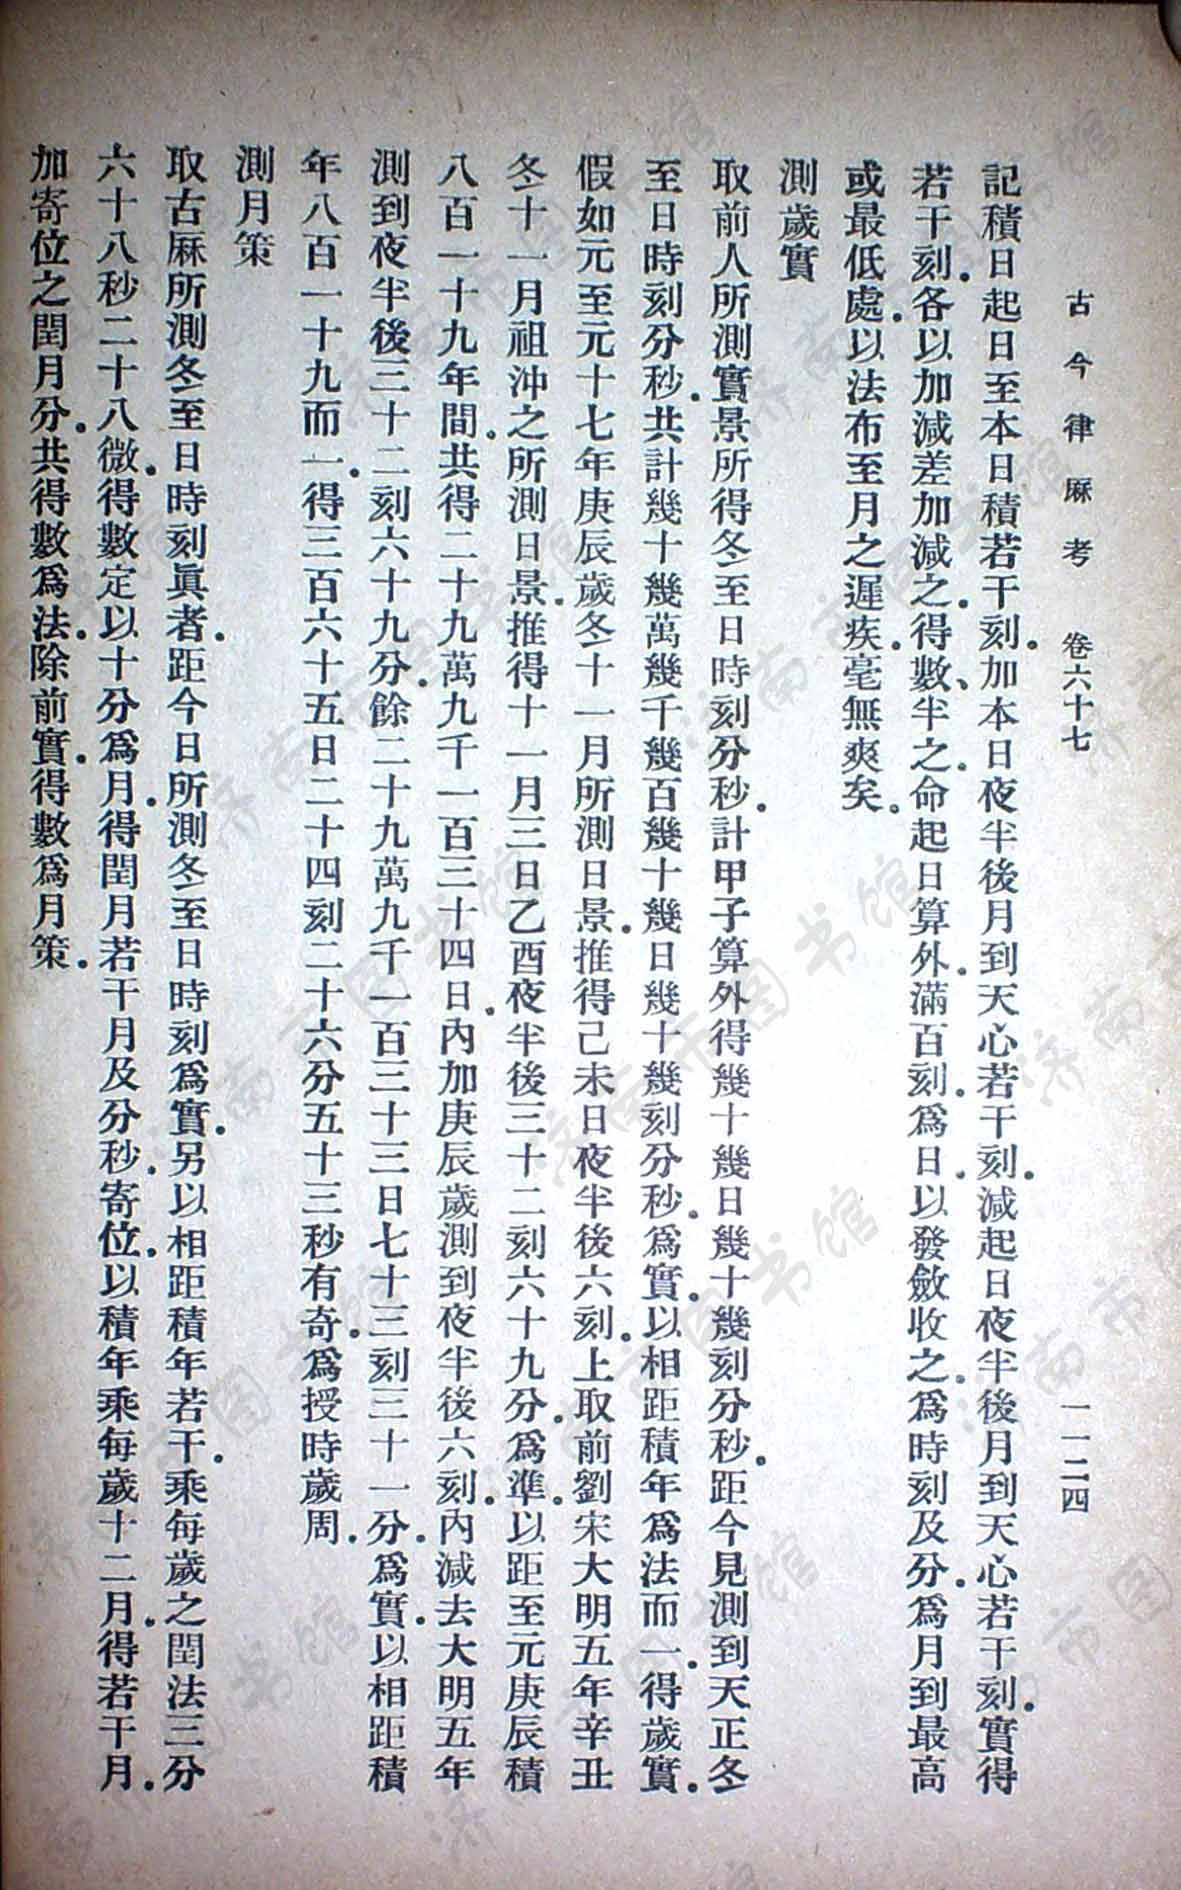 古今律厤考　卷六十七　一一二四
記積日起日至本日積若干刻。加本日夜半後月到天心若干刻。減起日夜半後月到天心若干刻。實得
若干刻。各以加減差加減之。得數、半之。命起日算外。滿百刻。爲日。以發斂收之。爲時刻及分。爲月到最高
或最低處。以法布至月之遲疾。毫無爽矣。
測歲實
取前人所測實景所得冬至日時刻分秒。計甲子算外得幾十幾日幾十幾刻分秒。距今見測到天正冬
至日時刻分秒。共計幾十幾萬幾千幾百幾十幾日幾十幾刻分秒。爲實。以相距積年爲法而一。得歲實。
假如元至元十七年庚辰歲冬十一月所測日景。推得己未日夜半後六刻。上取前劉宋大明五年辛丑
冬十一月祖沖之所測日景。推得十一月三日乙酉夜半後三十二刻六十九分。爲準。以距至元庚辰積
八百一十九年間。共得二十九萬九千一百三十四日。內加庚辰歲測到夜半後六刻。內減去大明五年
測到夜半後三十二刻六十九分。餘二十九萬九千一百三十三日七十三刻三十一分。爲實。以相距積
年八百一十九而一。得三百六十五日二十四刻二十六分五十三秒有奇。爲授時歲周。
測月策
取古厤所測冬至日時刻眞者。距今日所測冬至日時刻爲實。另以相距積年若干。乘每歲之閏法三分
六十八秒二十八微。得數定以十分爲月。得閏月若干月及分秒。寄位。以積年乘每歲十二月。得若干月。
加寄位之閏月分。共得數爲法。除前實。得數爲月策。
济南市图书馆